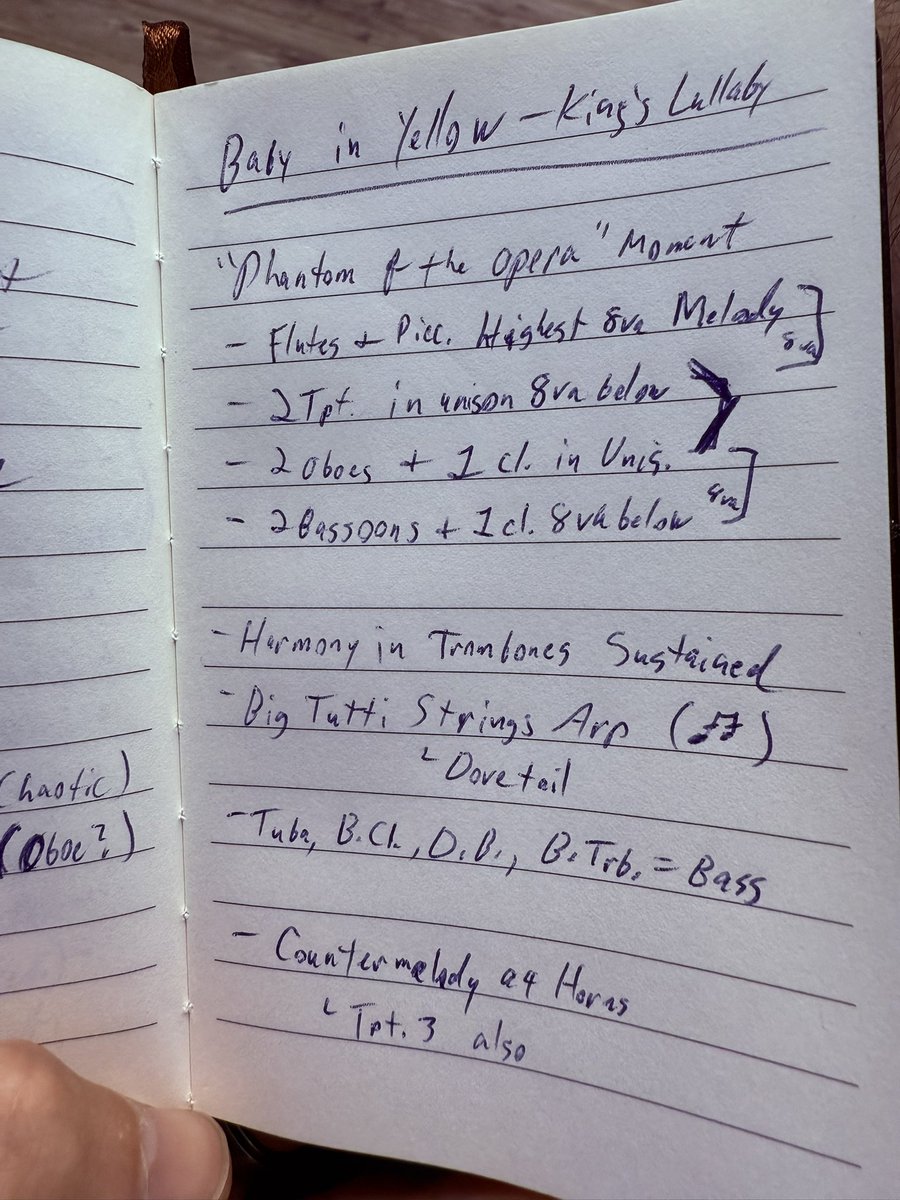 Baby in Yellow - King's Lullaby
"Phantom of the Opera" Moment
- Flutes + Picc. Highest 8va Melody
8va
- 2 Tpt. in unison 8va below
- 2 Oboes + 1 cl. in Unis.
- 2 Bassoons + 1 cl. 8va below
8va
- Harmony in Trombones Sustained
- Big Tutti Strings Arp (♫)
└ Dovetail
- Tuba, B.Cl., D.B., B.Trb. = Bass
- Countermelody a4 Horns
└ Tpt. 3 also
(Chaotic)
(Oboe?)